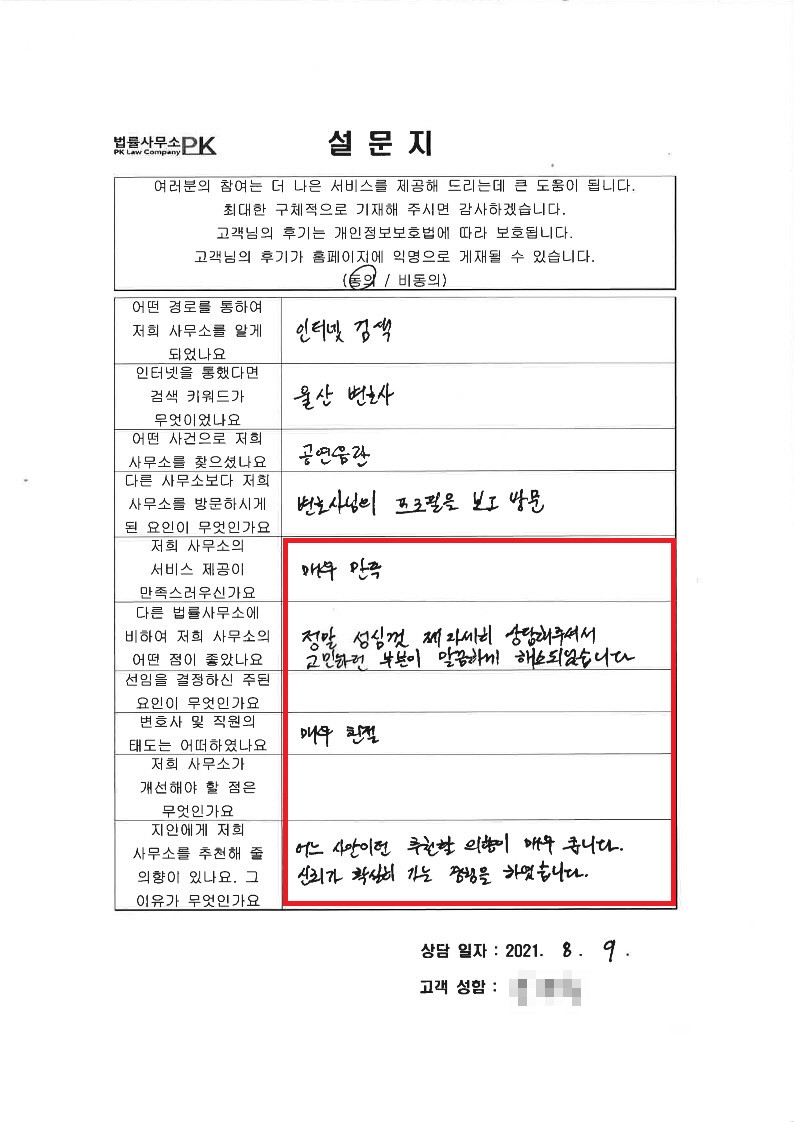 법률사무소PK
PK Law Company
설 문 지
여러분의 참여는 더 나은 서비스를 제공해 드리는데 큰 도움이 됩니다.
최대한 구체적으로 기재해 주시면 감사하겠습니다.
고객님의 후기는 개인정보보호법에 따라 보호됩니다.
고객님의 후기가 홈페이지에 익명으로 게재될 수 있습니다.
(동의 / 비동의)
어떤 경로를 통하여
저희 사무소를 알게
되었나요
인터넷 검색
인터넷을 통했다면
검색 키워드가
무엇이었나요
울산 변호사
어떤 사건으로 저희
사무소를 찾으셨나요
공연음란
다른 사무소보다 저희
사무소를 방문하시게
된 요인이 무엇인가요
변호사님의 프로필을 보고 방문
저희 사무소의
서비스 제공이
만족스러우신가요
매우 만족
다른 법률사무소에
비하여 저희 사무소의
어떤 점이 좋았나요
정말 성심껏 자세히 상담해주셔서
고민하던 부분이 말끔하게 해소되었습니다
선임을 결정하신 주된
요인이 무엇인가요
변호사 및 직원의
태도는 어떠하였나요
매우 친절
저희 사무소가
개선해야 할 점은
무엇인가요
지안에게 저희
사무소를 추천해 줄
의향이 있나요. 그
이유가 무엇인가요
어느 사안이던 추천할 의향이 매우 큽니다.
신뢰가 확실히 가는 경험을 하였습니다.
상담 일자 : 2021. 8 . 9 .
고객 성함 :